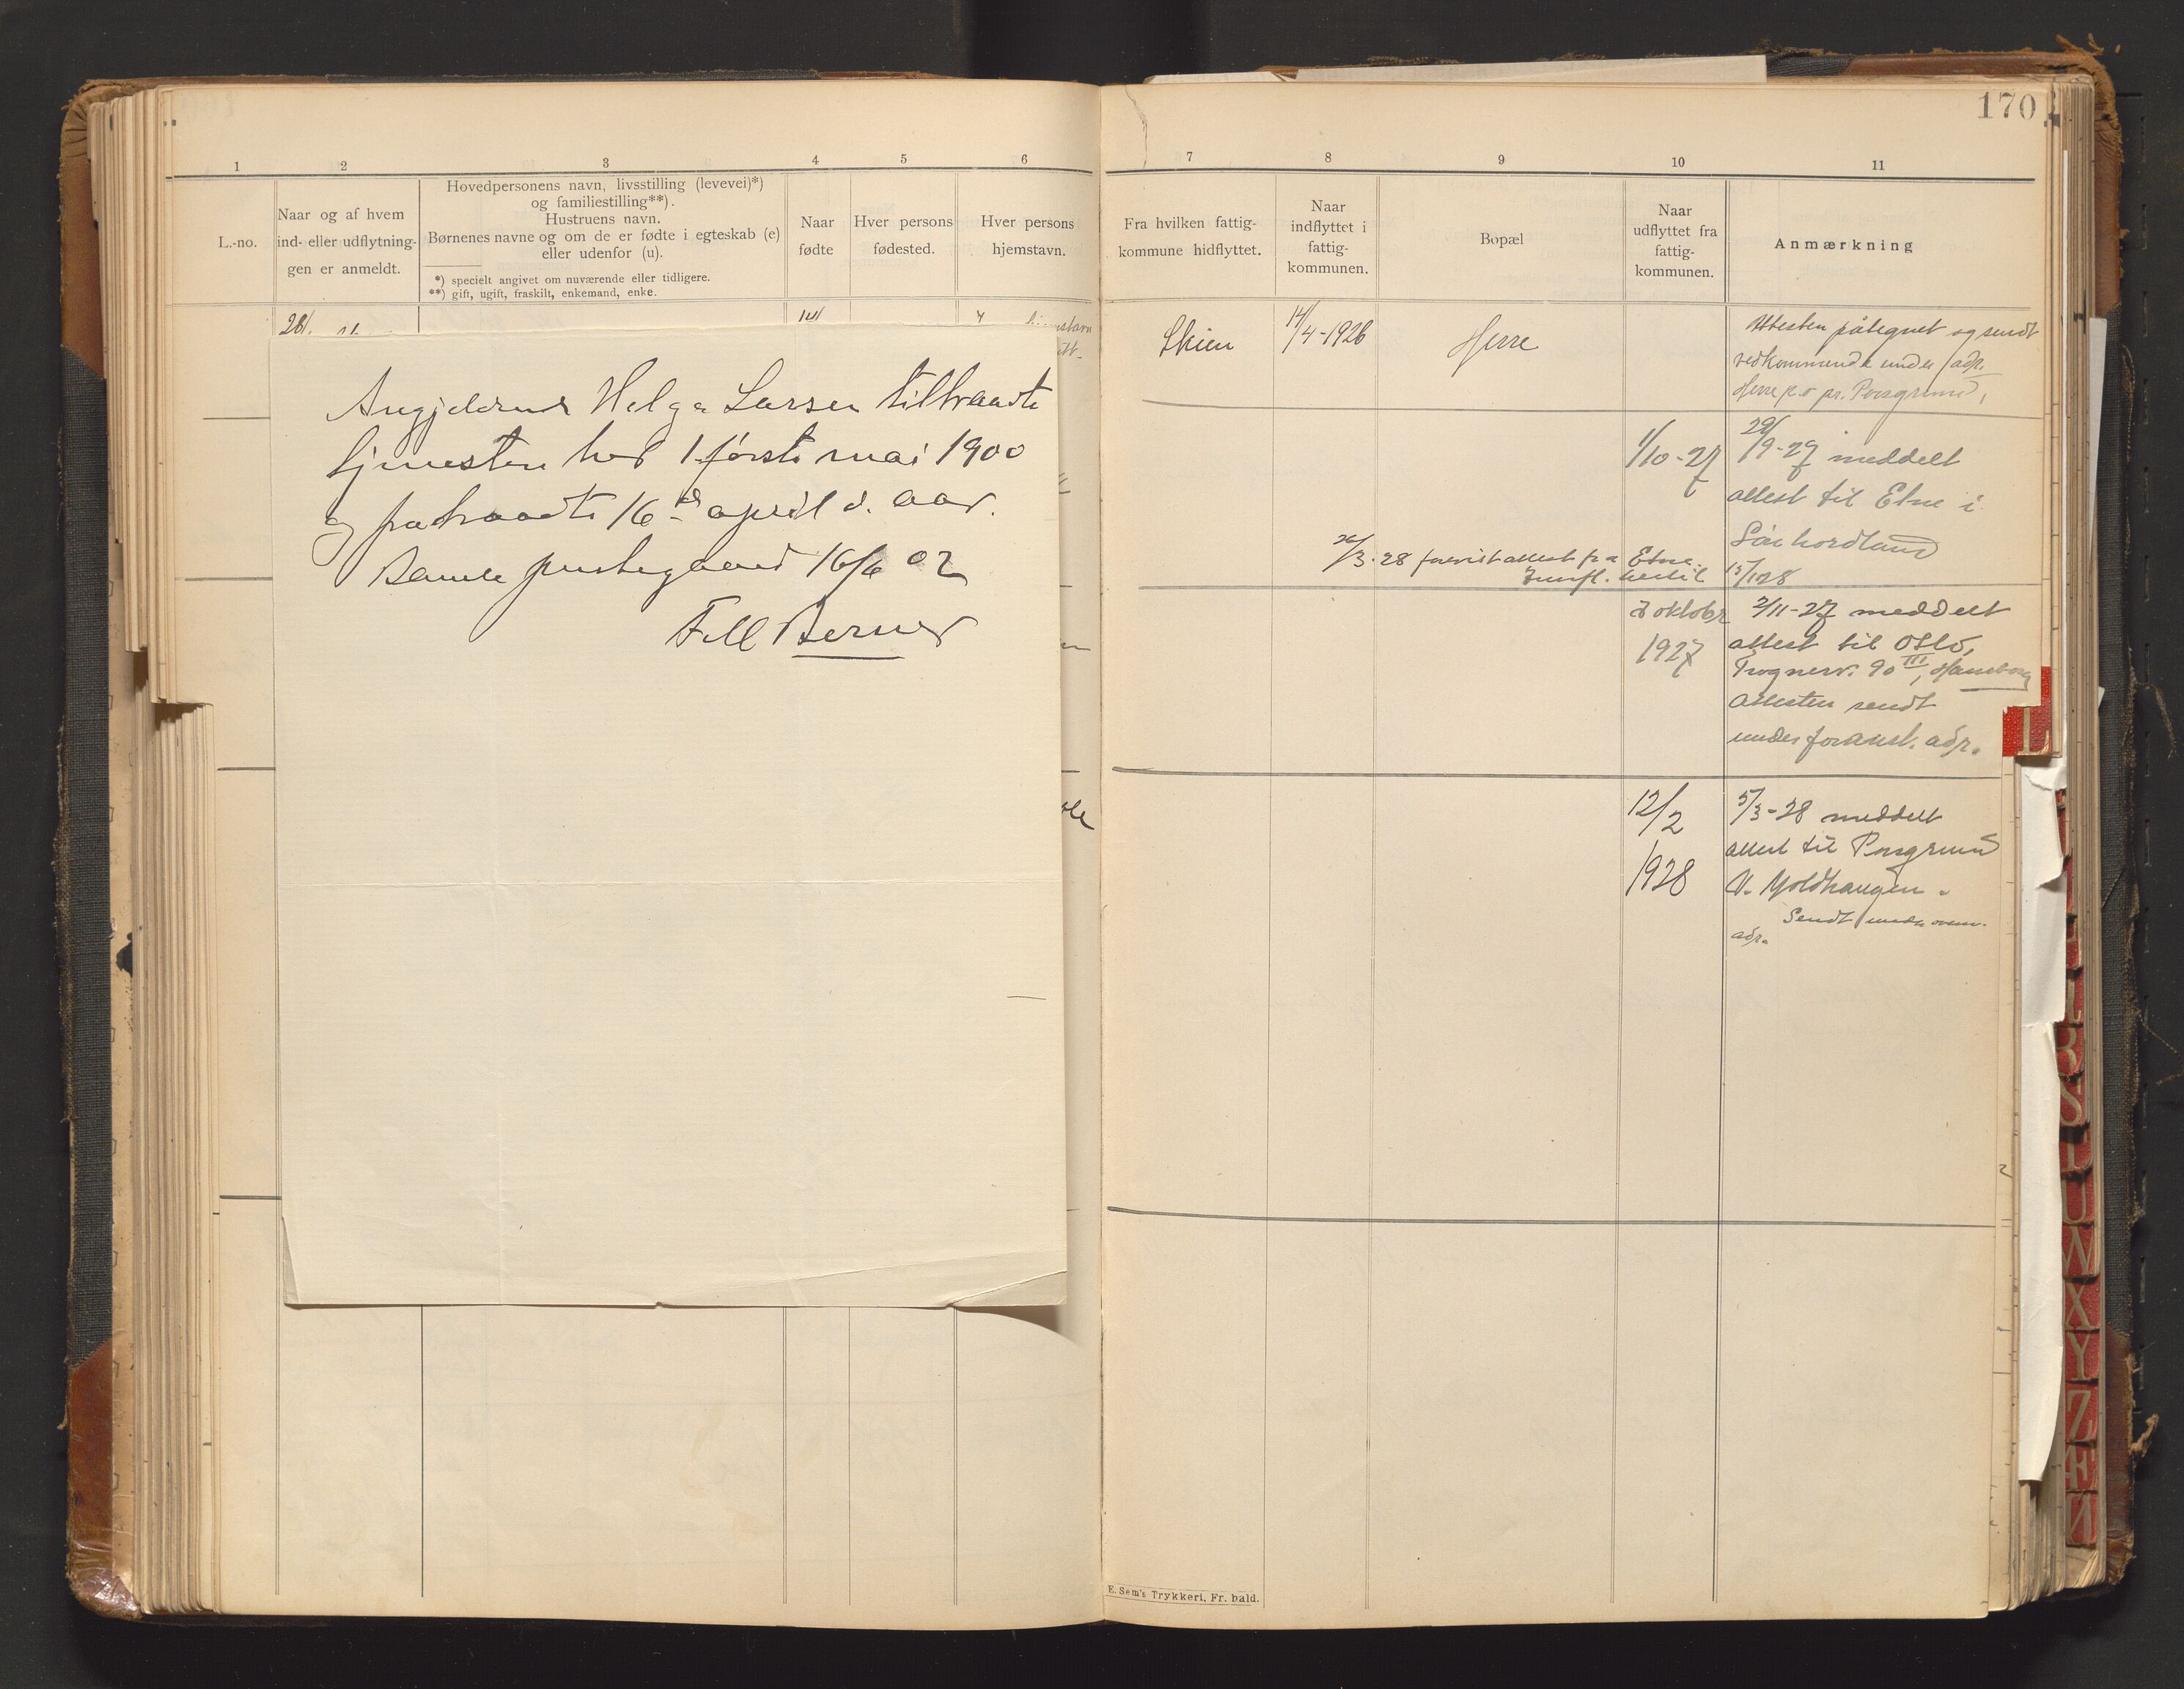 170
1 2 3 4 5 6
L.-no.
Naar og af hvem
ind- eller udflytnin-
gen er anmeldt.
Hovedpersonens navn, livsstilling (levevei)*)
og familiestilling**).
Hustruens navn.
Børnenes navne og om de er fødte i egteskab (e)
eller udenfor (u).
*) specielt angivet om nuværende eller tidligere.
**) gift, ugift, fraskilt, enkemand, enke.
Naar
fødte
Hver persons
fødested.
Hver persons
hjemstavn.
28/
Angjeldende Helga Larsen tiltraadte
tjenesten her 1 første mai 1900
og fratraadte 16de april d. aar.
Bamle prestegaard 16/6 02
Berner
7 8 9 10 11
Fra hvilken fattig-
kommune hidflyttet.
Naar
indflyttet i
fattig-
kommunen.
Bopæl
Naar
udflyttet fra
fattig-
kommunen.
Anmærkning
Skien
14/4-1926
Herre
Attesten påtegnet og sendt
vedkommende under adr.
Herre p.o pr. Porsgrund,
1/10-27
29/9-27 meddelt
attest til Etne i
Sönhordland
26/3-28 forevist attest fra Etne
Innfl. hertil 15/1 28
oktober
1927
2/11-27 meddelt
attest til Oslo,
Frognerv. 90 III,
Attesten sendt
under foranst. adr.
12/2
1928
5/3-28 meddelt
attest til Porsgrund
V. Moldhaugen.
Sendt under ovenn.
adr.
L
R
S
T
U
W
X
Y
Z
Æ
E. Sem's Trykkeri, Fr.hald.